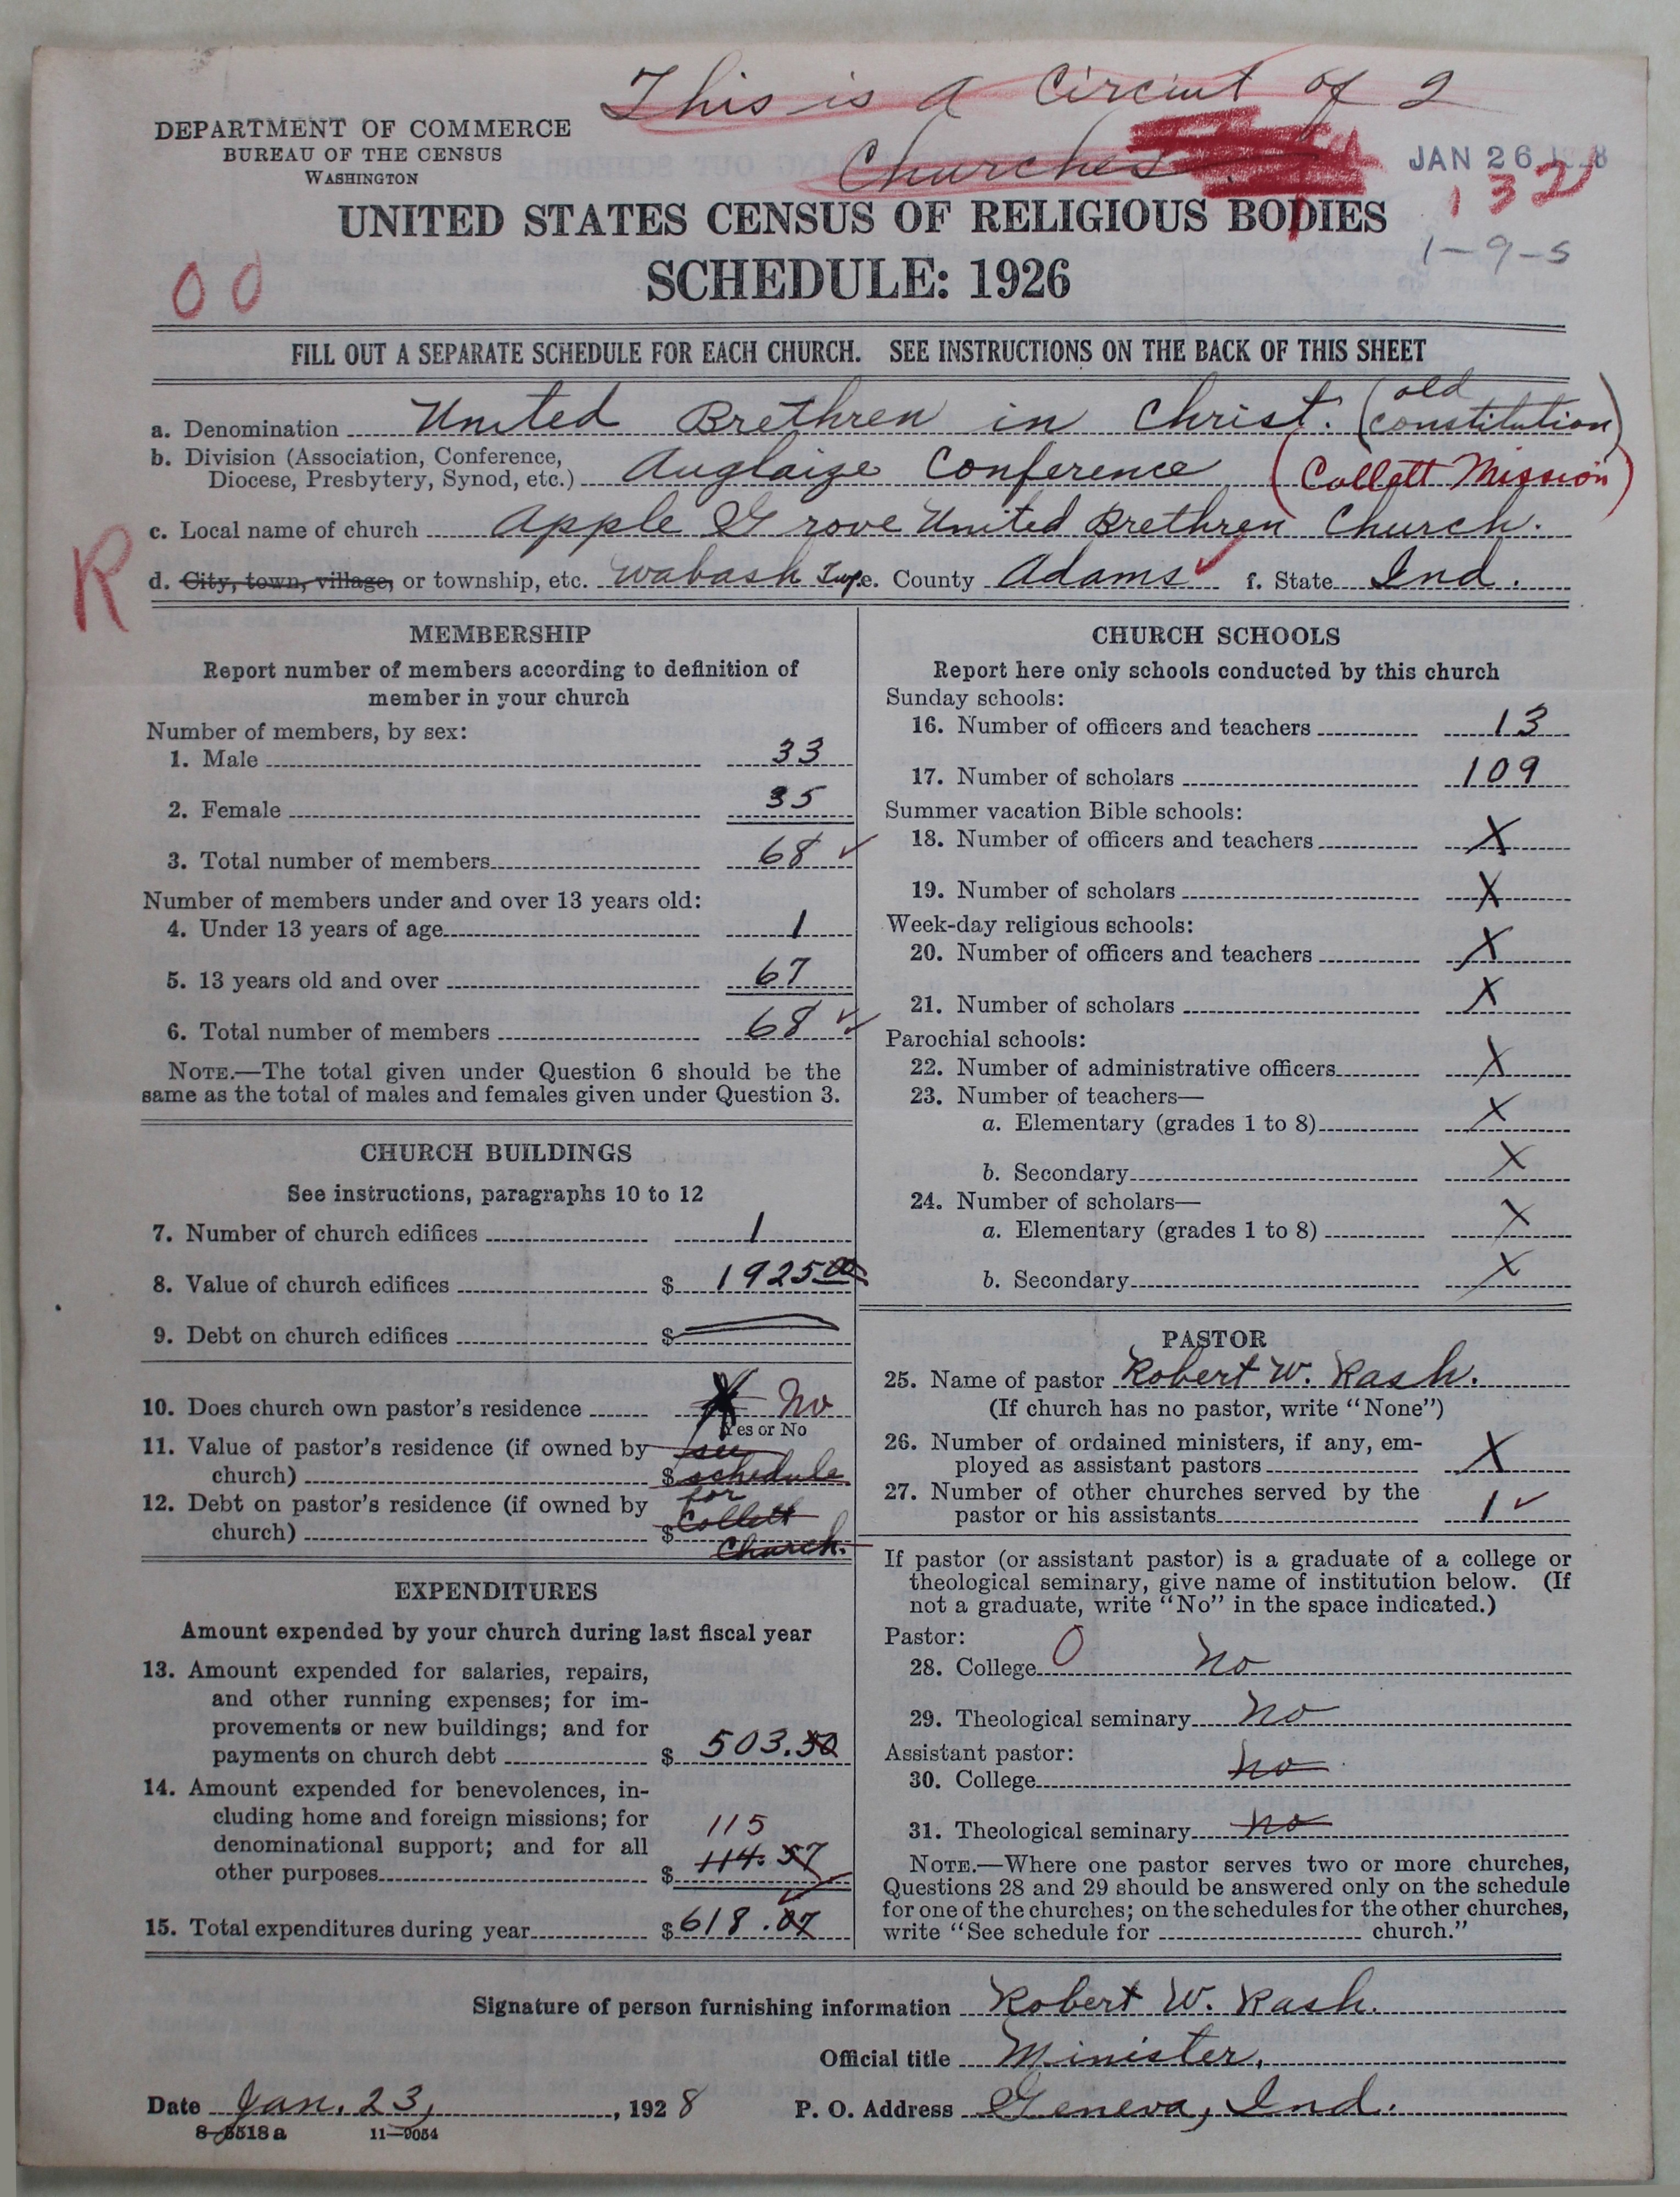 This is a Circuit of 2
Churches
DEPARTMENT OF COMMERCE
BUREAU OF THE CENSUS
WASHINGTON
JAN 26
132
1-9-5
UNITED STATES CENSUS OF RELIGIOUS BODIES
SCHEDULE: 1926
00
FILL OUT A SEPARATE SCHEDULE FOR EACH CHURCH. SEE INSTRUCTIONS ON THE BACK OF THIS SHEET
a. Denomination United Brethren in Christ. (old constitution)
b. Division (Association, Conference,
Diocese, Presbytery, Synod, etc.) Auglaize Conference (Collett Mission)
c. Local name of church Apple Grove United Brethren Church.
R
d. City, town, village, or township, etc. Wabash Twp. e. County Adams ✓ f. State Ind.
MEMBERSHIP
Report number of members according to definition of
member in your church
Number of members, by sex:
1. Male 33
2. Female 35
3. Total number of members 68 ✓
Number of members under and over 13 years old:
4. Under 13 years of age 1
5. 13 years old and over 67
6. Total number of members 68 ✓
NOTE.—The total given under Question 6 should be the
same as the total of males and females given under Question 3.
CHURCH BUILDINGS
See instructions, paragraphs 10 to 12
7. Number of church edifices 1
8. Value of church edifices $ 1925 00
9. Debt on church edifices $
10. Does church own pastor's residence No
Yes or No
11. Value of pastor's residence (if owned by see
church) $ schedule
12. Debt on pastor's residence (if owned by for
church) $ Collett
Church.
EXPENDITURES
Amount expended by your church during last fiscal year
13. Amount expended for salaries, repairs,
and other running expenses; for im-
provements or new buildings; and for
payments on church debt $ 503.50
14. Amount expended for benevolences, in-
cluding home and foreign missions; for
denominational support; and for all 115
other purposes $ 114.57
15. Total expenditures during year $ 618.07
CHURCH SCHOOLS
Report here only schools conducted by this church
Sunday schools:
16. Number of officers and teachers 13
17. Number of scholars 109
Summer vacation Bible schools:
18. Number of officers and teachers X
19. Number of scholars X
Week-day religious schools:
20. Number of officers and teachers X
21. Number of scholars X
Parochial schools:
22. Number of administrative officers X
23. Number of teachers—
a. Elementary (grades 1 to 8) X
b. Secondary X
24. Number of scholars—
a. Elementary (grades 1 to 8) X
b. Secondary X
PASTOR
25. Name of pastor Robert W. Rash.
(If church has no pastor, write "None")
26. Number of ordained ministers, if any, em-
ployed as assistant pastors X
27. Number of other churches served by the
pastor or his assistants 1 ✓
If pastor (or assistant pastor) is a graduate of a college or
theological seminary, give name of institution below. (If
not a graduate, write "No" in the space indicated.)
Pastor:
28. College 0 No
29. Theological seminary No
Assistant pastor:
30. College No
31. Theological seminary No
NOTE.—Where one pastor serves two or more churches,
Questions 28 and 29 should be answered only on the schedule
for one of the churches; on the schedules for the other churches,
write "See schedule for church."
Signature of person furnishing information Robert W. Rash.
Official title Minister.
Date Jan. 23, 1928 P. O. Address Geneva, Ind.
8-5518a 11-9054